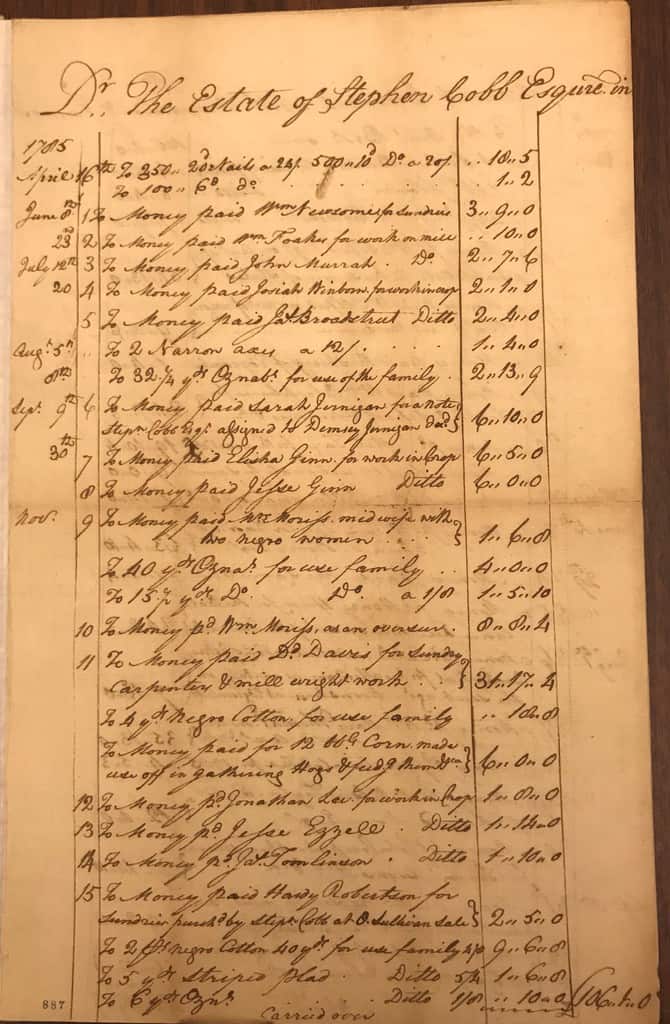 Dr. The Estate of Stephen Cobb Esqure. in
1785
April 16th To 250 .. 20d Nails a 2s/. 500 .. 10d Do. a 20/. .. 18 .. 5
To 100 .. 6d do. 1 .. 2
June 8th 1 To Money paid Wm Newsome for Sundries 3 .. 9 .. 0
23d 2 To Money paid Wm Foakes for work on mill .. 10 .. 0
July 12th 3 To Money paid John Murrah . Do. 2 .. 7 .. 6
20 4 To Money paid Josiah Winborn, for work in crop 2 .. 1 .. 0
5 To Money paid Jas. Broadstreet Ditto 2 .. 4 .. 0
Augt 5th .. To 2 Narrow axes a 12/. 1 .. 4 .. 0
8th To 32 3/4 yds Oznabs. for use of the family . 2 .. 13 .. 9
Sept. 9th 6 To Money paid Sarah Jernigan for a note
Stepn. Cobb Esqr. assigned to Demsey Jernigan decd. } 6 .. 10 .. 0
30th 7 To Money paid Elisha Ginn. for work in Crop 6 .. 5 .. 0
8 To Money paid Jesse Ginn Ditto 6 .. 0 .. 0
Nov. 9 To Money paid Mrs Moriss. midwife with
two negro women . . . . } 1 .. 6 .. 8
To 40 yds Oznas. for use family .. 4 .. 0 .. 0
To 15 1/2 yds. Do. Do. a 1/8 1 .. 5 .. 10
10 To Money pd Wm Moriss, as an overseer. 8 .. 8 .. 4
11 To Money paid Dd. Davis for Sundry
Carpenters & mill wright work . . } 31 .. 17 .. 4
To 4 yds Negro Cotton. for use family .. 18 .. 8
To Money paid for 12 bbs Corn. made
use off in gathering Hogs & feedg them &ca } 6 .. 0 .. 0
12 To Money pd Jonathan Lee. for work in Crop 1 .. 8 .. 0
13 To Money pd Jesse Ezzell . Ditto 1 .. 14 .. 0
14 To Money pd. Jas. Tomlinson . Ditto 1 .. 10 .. 0
15 To Money paid Hardy Robertson for
Sundries purchd by Stepn Cobb at O. Sullivan Sale } 2 .. 5 .. 0
To 2 negro Cotton 40 yds for use family 9 .. 6 .. 8
To 5 yds Striped plad . Ditto 5/4 1 .. 6 .. 8
To 6 yds Ozns. Ditto 1/8 .. 10 .. 0 (106 .. 1 .. 0
Carried over
887